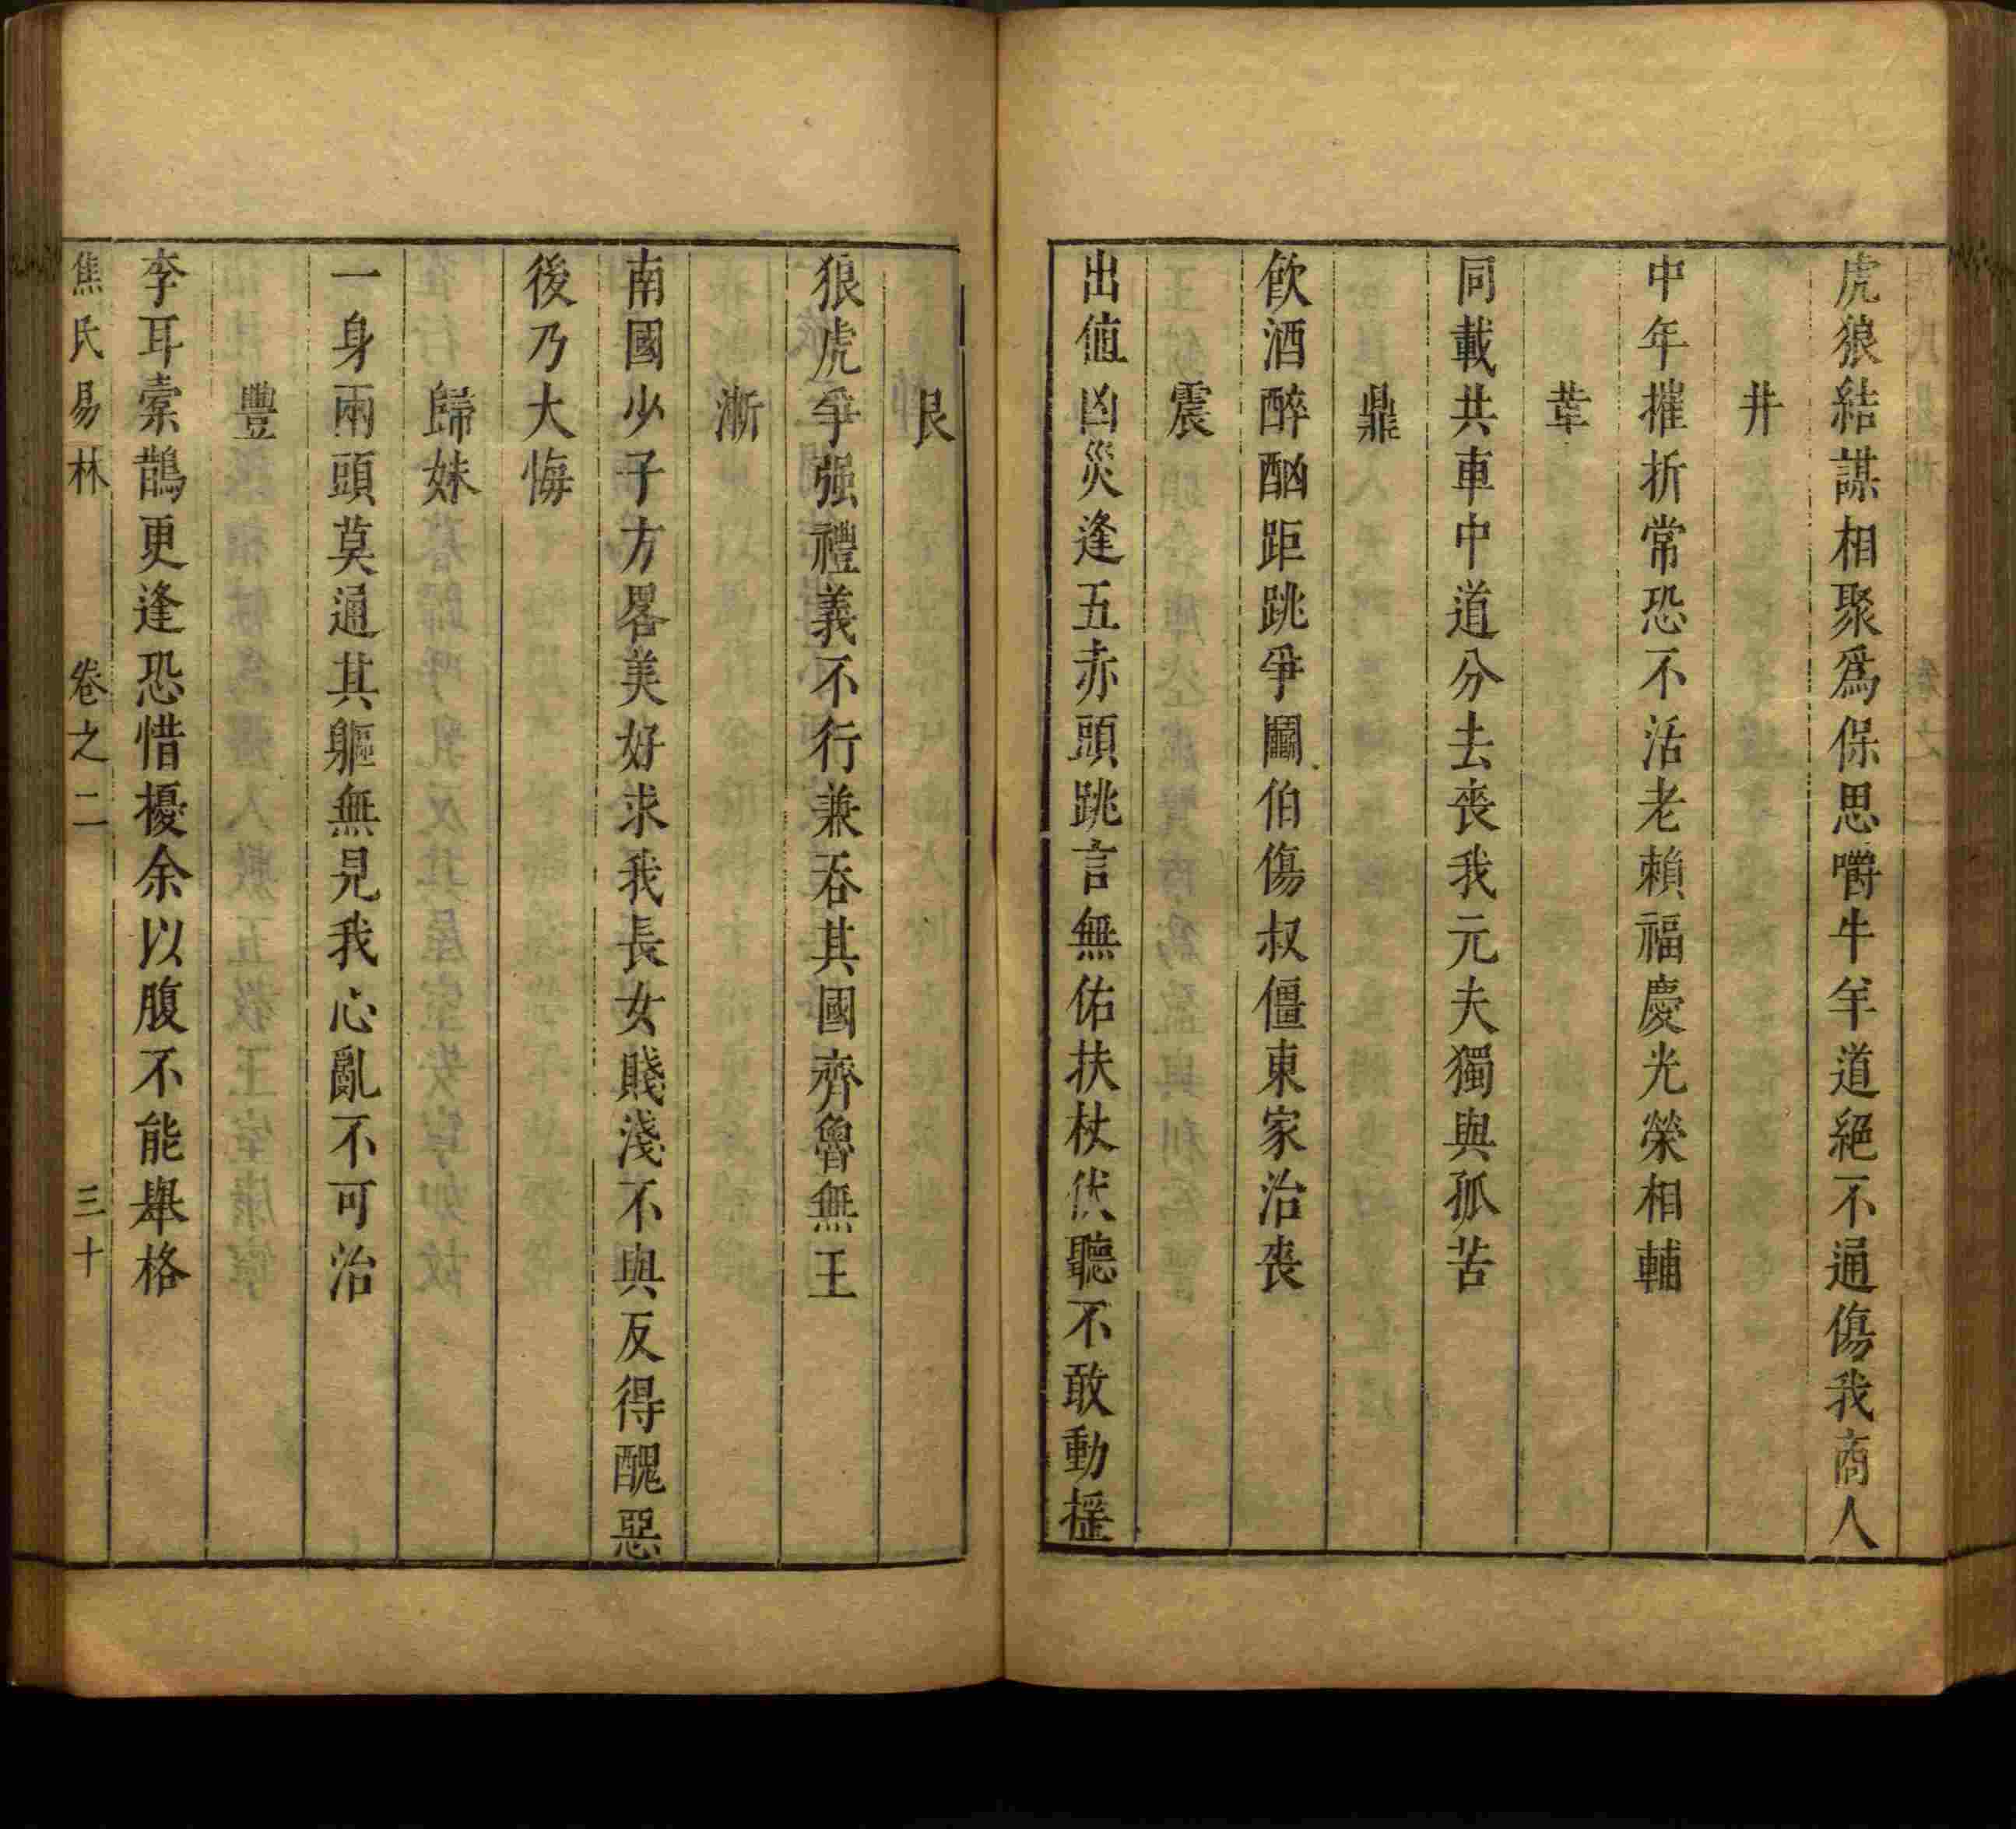 虎狼結謀相聚爲保思嚼牛羊道絕不通傷我商人
井
中年摧折常恐不活老賴福慶光榮相輔
革
同載共車中道分去喪我元夫獨與孤苦
鼎
飲酒醉酗距跳爭鬭伯傷叔僵東家治喪
震
出值凶災逢五赤頭跳言無佑扶杖伏聽不敢動揺
艮
狼虎爭强禮義不行兼吞其國齊魯無王
漸
南國少子方畧美好求我長女賤淺不與反得醜惡
後乃大悔
歸妹
一身兩頭莫通其軀無見我心亂不可治
豐
李耳彙鵲更逢恐惜擾余以腹不能舉格
焦氏易林 卷之二 三十